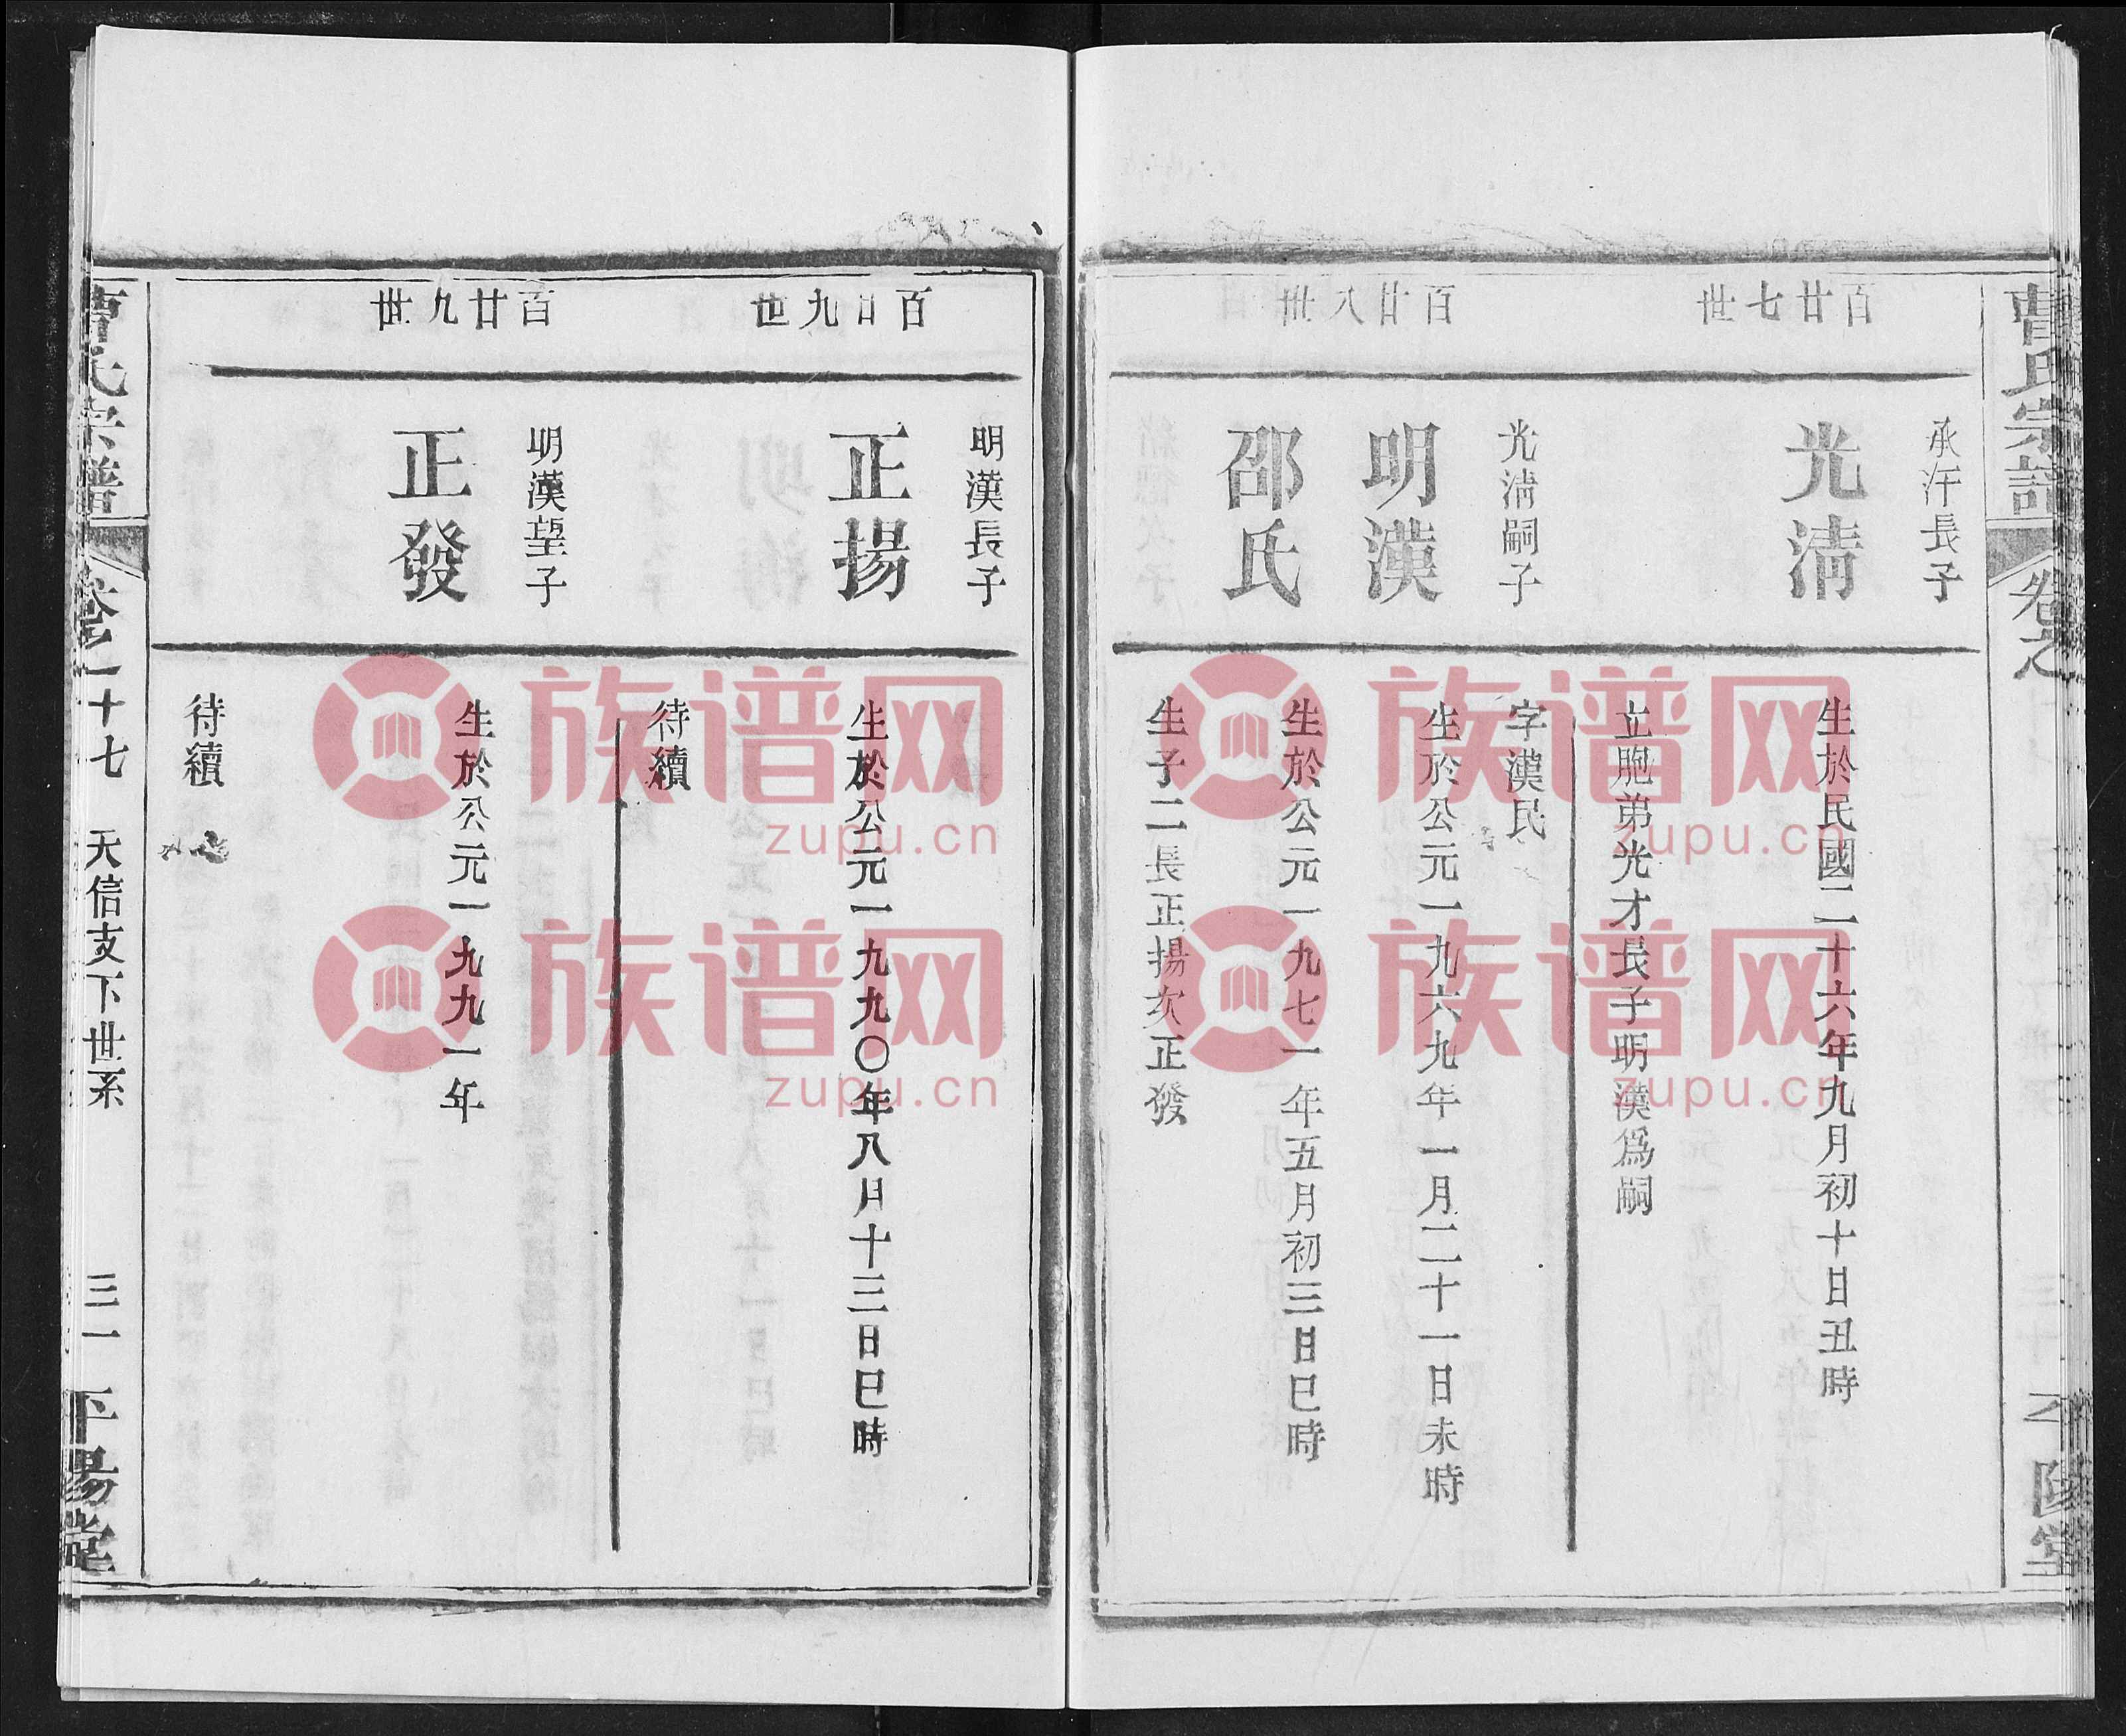 曹氏宗譜
卷之
平陽堂
百廿七世
承汗長子
光清
生於民國二十六年九月初十日丑時
立胞弟光才長子明漢爲嗣
百廿八世
光清嗣子
明漢
字漢民
生於公元一九六九年一月二十一日未時
邵氏
生於公元一九七一年五月初三日巳時
生子二長正揚次正發
百廿九世
明漢長子
正揚
生於公元一九九〇年八月十三日巳時
待續
百廿九世
明漢望子
正發
生於公元一九九一年
待續
曹氏宗譜
卷之十七
天信支下世系
三一
平陽堂
族谱网
zupu.cn
族谱网
zupu.cn
族谱网
zupu.cn
族谱网
zupu.cn